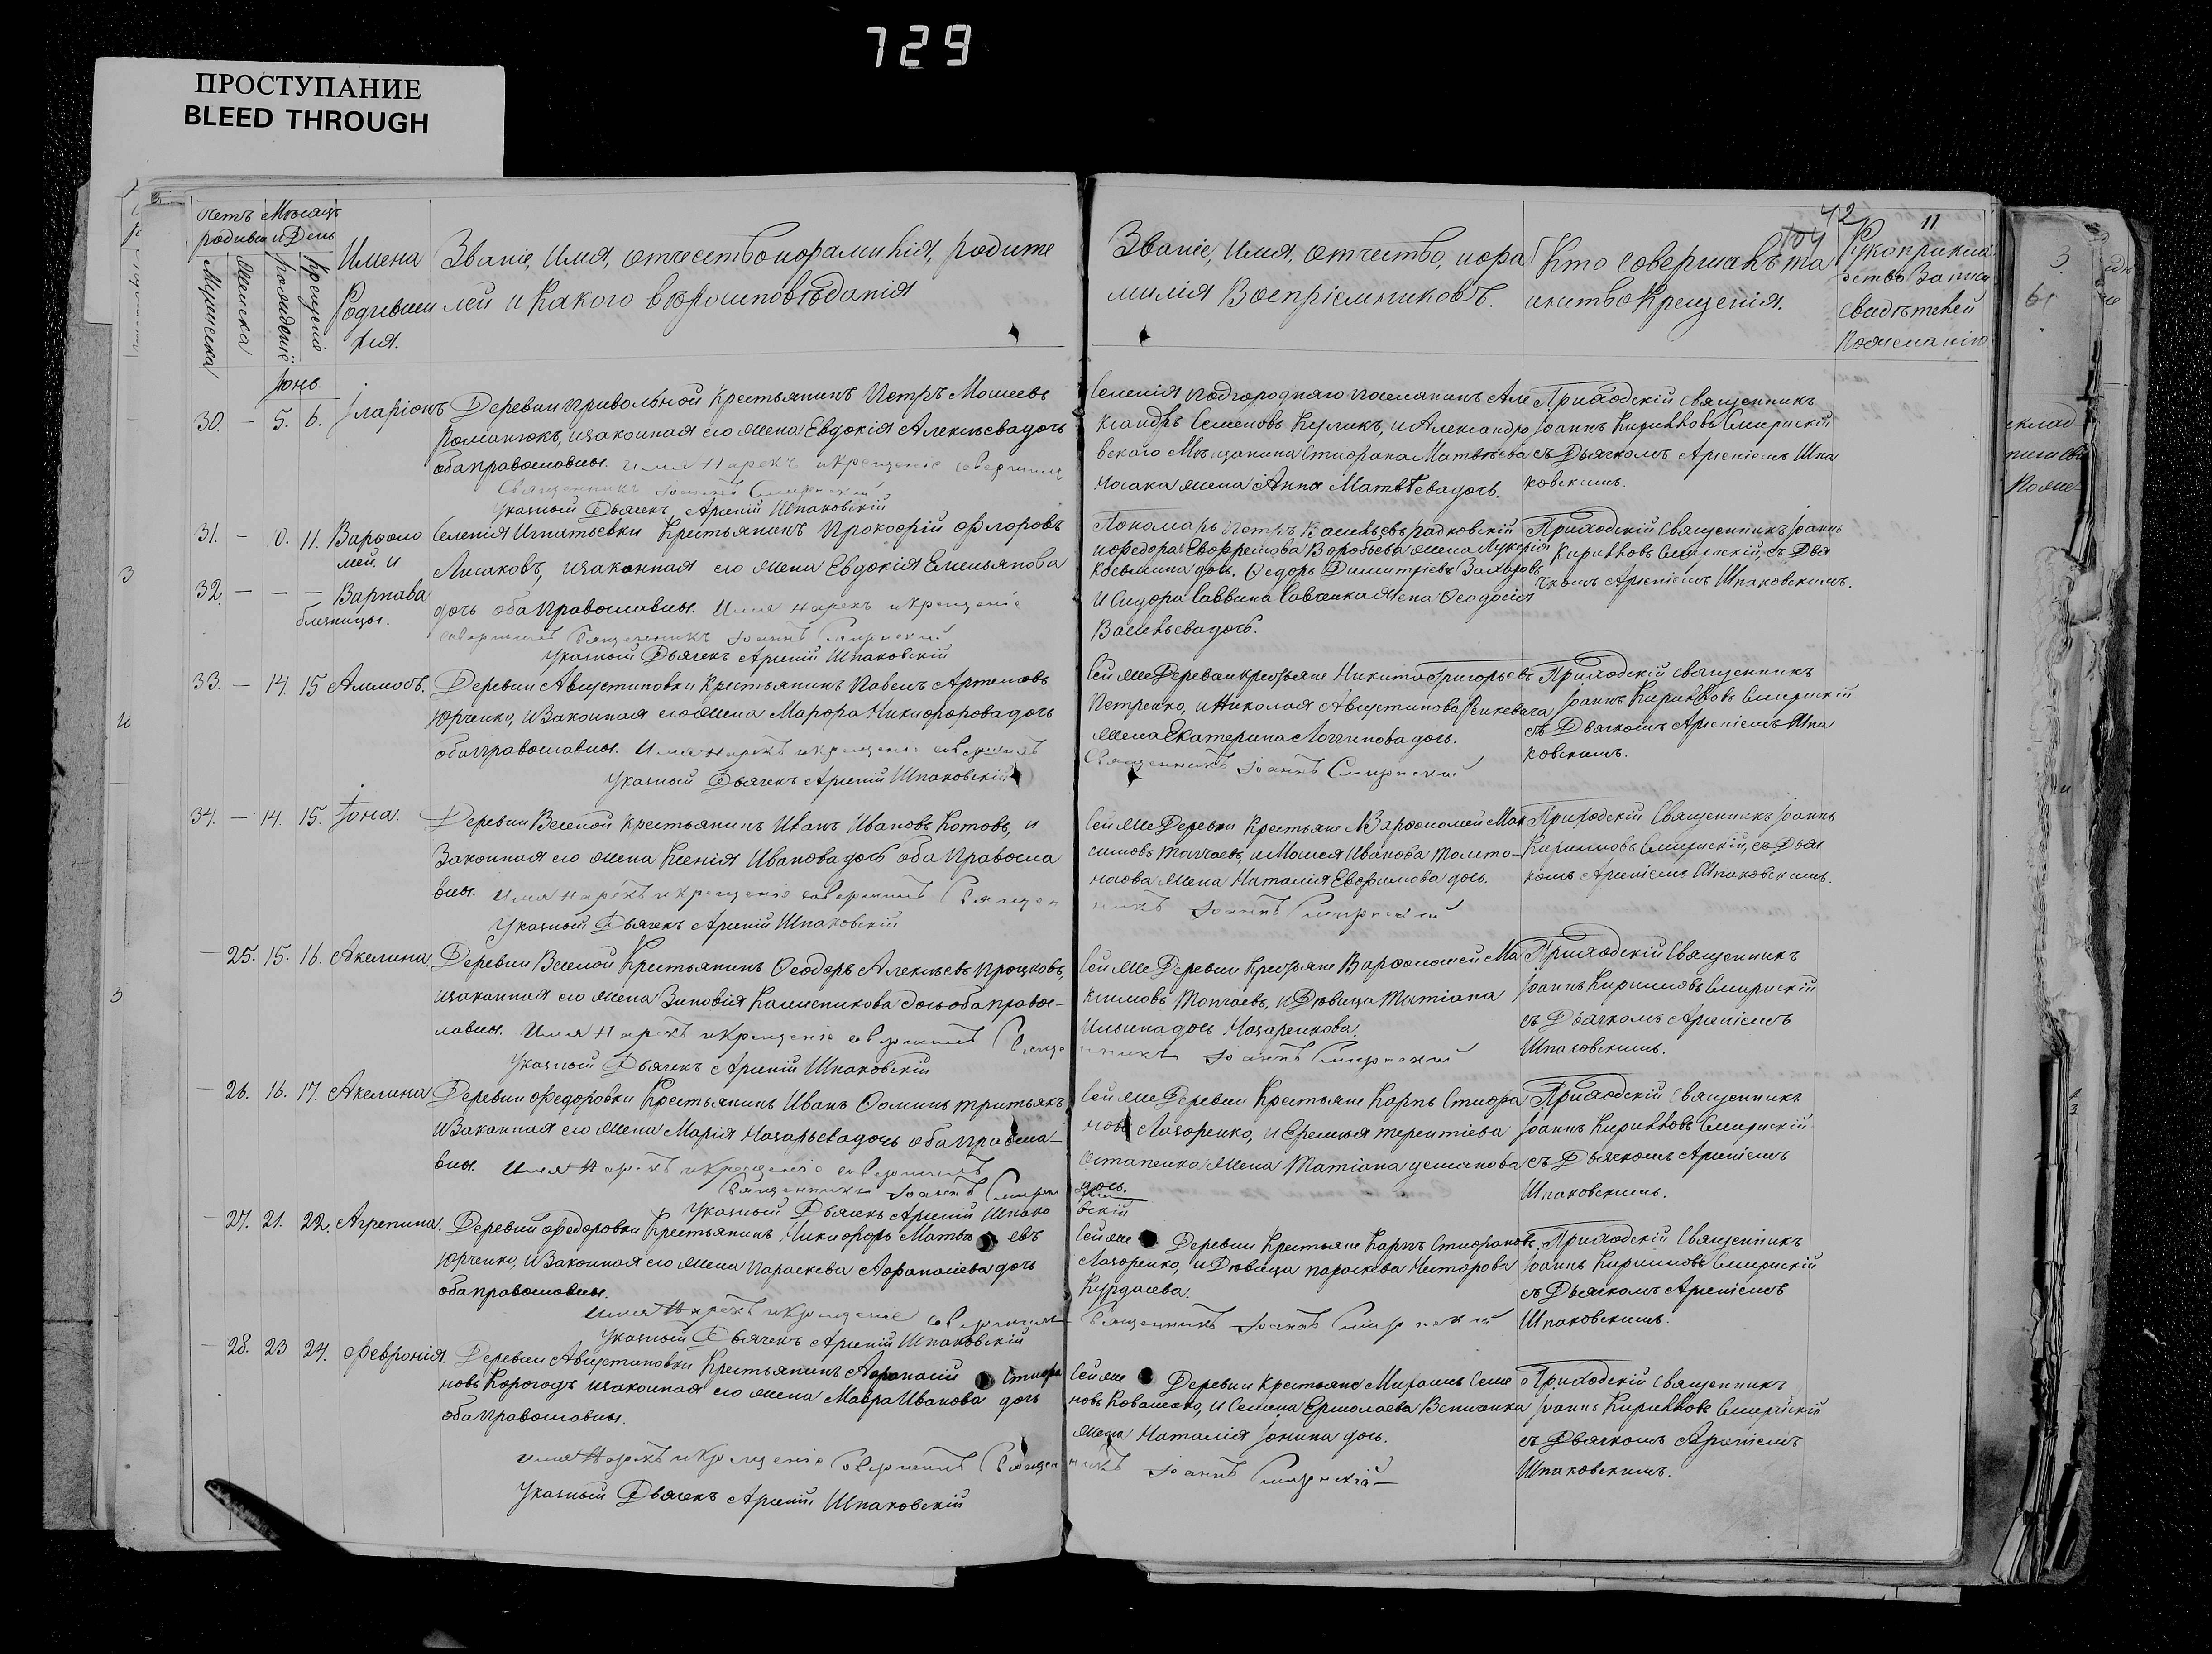 729
ПРОСТУПАНИЕ
BLEED THROUGH
42
104
11
Счетъ Мѣсяцъ
родивш и День
Мужеска
Женска
рожденіе
Крещенія
Имена
Родивши
хся.
Званіе, Имя, отчество и фамилія, родите
лей и какого вѣроисповѣданія
Званіе, Имя, отчество, и фа
милія Воспріемниковъ.
Кто совершалъ та
инство Крещенія.
Рукоприклад
ство Записи
свидѣтелей
По желанію
Іюнь
30. - 5. 6. Іларіонъ Деревни Привольной Крестьянинъ Петръ Моисеевъ
Романюкъ, и законная его жена Евдокія Алексѣева дочь
оба православны. Имя нарекъ и Крещеніе совершилъ
Священникъ Іоаннъ Смирнскій
Указный Дьячекъ Арсеній Шпаковскій
Селенія Подгородняго поселянинъ Але
ксандръ Семеновъ Куликъ, и Александро
вскаго Мѣщанина Стефана Матвѣева
Носака жена Анна Матвѣева дочь.
Приходскій Священникъ
Іоаннъ Кирилловъ Смирнскій
съ Дьячкомъ Арсеніемъ Шпа
ковскимъ.
31. - 10. 11. Варфоло
мей. и
32. - - - Варнава
близницы.
Селенія Игнатьевки Крестьянинъ Прокофій Флоровъ
Лисаковъ, и законная его жена Евдокія Емельянова
дочь оба Православны. Имя нарекъ и Крещеніе
совершилъ Священникъ Іоаннъ Смирнскій
Указный Дьячекъ Арсеній Шпаковскій
Пономарь Петръ Васильевъ Гадковскій
и Федора Евфремова Воробьева жена Лукерія
Косьмина дочь. Ѳедоръ Димитріевъ Захаровъ
И Сидора Саввина Савченка жена Ѳеодосія
Васильева дочь.
Приходскій Священникъ Іоаннъ
Кирилловъ Смирнскій, съ Дья
чкомъ Арсеніемъ Шпаковскимъ.
33. - 14. 15 Аммосъ. Деревни Августиновки Крестьянинъ Павелъ Артемовъ
Юрченко, и Законная его жена Марфа Никифорова дочь
оба православны. Имя нарекъ и крещеніе совершилъ
Указный Дьячекъ Арсеній Шпаковскій
Сей же Деревни крестьяне Никита Григорьевъ
Петренко, и Николая Августинова Сенкевича
жена Екатерина Логгинова дочь.
Священникъ Іоаннъ Смирнскій
Приходскій священникъ
Іоаннъ Кирилловъ Смирнскій
съ Дьячкомъ Арсеніемъ Шпа
ковскимъ.
34. - 14. 15. Іона. Деревни Веселой Крестьянинъ Иванъ Ивановъ Котовъ, и
Законная его жена Ксенія Иванова дочь оба Правосла
вны. Имя нарекъ и крещеніе совершилъ Священ
Указный Дьячекъ Арсеній Шпаковскій
Сей же Деревни Крестьяне Варфоломей Мак
симовъ Топчаевъ, и Моисея Иванова Толсто-
носова жена Наталія Евфимова дочь.
никъ Іоаннъ Смирнскій
Приходскій Священникъ Іоаннъ
Кирилловъ Смирнскій, съ Дьяч
комъ Арсеніемъ Шпаковскимъ.
- 25. 15. 16. Акелина. Деревни Веселой Крестьянинъ Ѳеодоръ Алексѣевъ Процковъ,
и законная его жена Зиновія Калистикова дочь оба право-
славны. Имя Нарекъ и Крещеніе совершилъ Свяще
Указный Дьячекъ Арсеній Шпаковскій
Сей же Деревни Крестьяне Варфоломей Ма
ксимовъ Топчаевъ, и Дѣвица Татіана
Ильина дочь Назаренкова
нникъ Іоаннъ Смирнскій
Приходскій Священникъ
Іоаннъ Кирилловъ Смирнскій
съ Дьячкомъ Арсеніемъ
Шпаковскимъ.
- 26. 16. 17. Акелина Деревни Федоровки Крестьянинъ Иванъ Ѳоминъ Притыкъ,
и Законная его жена Марія Назарьева дочь оба правосла-
вны. Имя Нарекъ и Крещеніе совершилъ
Священникъ Іоаннъ Смирн
Указный Дьячекъ Арсеній Шпако
Сей же Деревни Крестьяне Карпъ Стефа
новъ Лазоренко, и Еремѣя Терентіева
Остапенка жена Татіана Демянова
дочь.
скій
вскій
Приходскій Священникъ
Іоаннъ Кирилловъ Смирнскій
съ Дьячкомъ Арсеніемъ
Шпаковскимъ.
- 27. 21. 22. Агрепина. Деревни Федоровки Крестьянинъ Никифоръ Матвѣевъ
Юрченко, и Законная его жена Параскева Афанасіева дочь
оба православны.
Имя Нарекъ и Крещеніе совершилъ
Указный Дьячекъ Арсеній Шпаковскій
Сей же Деревни Крестьяне Карпъ Стефановъ
Лазоренко, и Дѣвица Параскева Несторова
Курдасева.
Священникъ Іоаннъ Смирнскій
Приходскій Священникъ
Іоаннъ Кирилловъ Смирнскій
съ Дьячкомъ Арсеніемъ
Шпаковскимъ.
- 28. 23 24. Февронія. Деревни Августиновки Крестьянинъ Афанасій Стефа
новъ Корогодъ и законная его жена Мавра Иванова дочь
оба православны.
Имя Нарекъ и Крещеніе Совершилъ Священ
Указный Дьячекъ Арсеній Шпаковскій
Сей же Деревни Крестьяне Мирамъ Семе
новъ Ковалено, и Семена Ермолаева
жена Наталія Іонина дочь.
никъ Іоаннъ Смирнскій
Приходскій Священникъ
Іоаннъ Кирилловъ Смирнскій
съ Дьячкомъ Арсеніемъ
Шпаковскимъ.